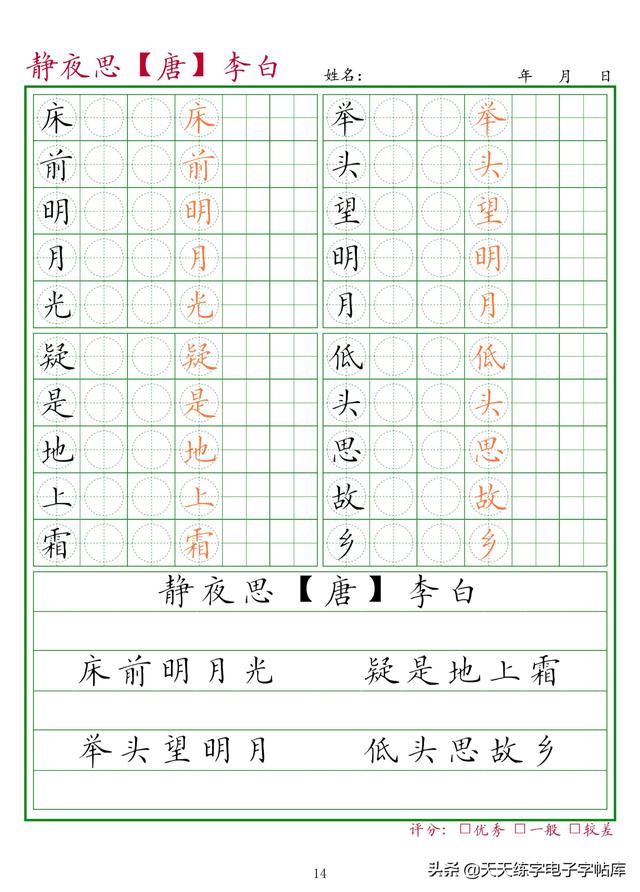 静夜思【唐】李白
姓名： 年 月 日
床 床 举 举
前 前 头 头
明 明 望 望
月 月 明 明
光 光 月 月
疑 疑 低 低
是 是 头 头
地 地 思 思
上 上 故 故
霜 霜 乡 乡
静夜思【唐】李白
床前明月光 疑是地上霜
举头望明月 低头思故乡
评分：□优秀 □一般 □较差
14
头条@天天练字电子字帖库